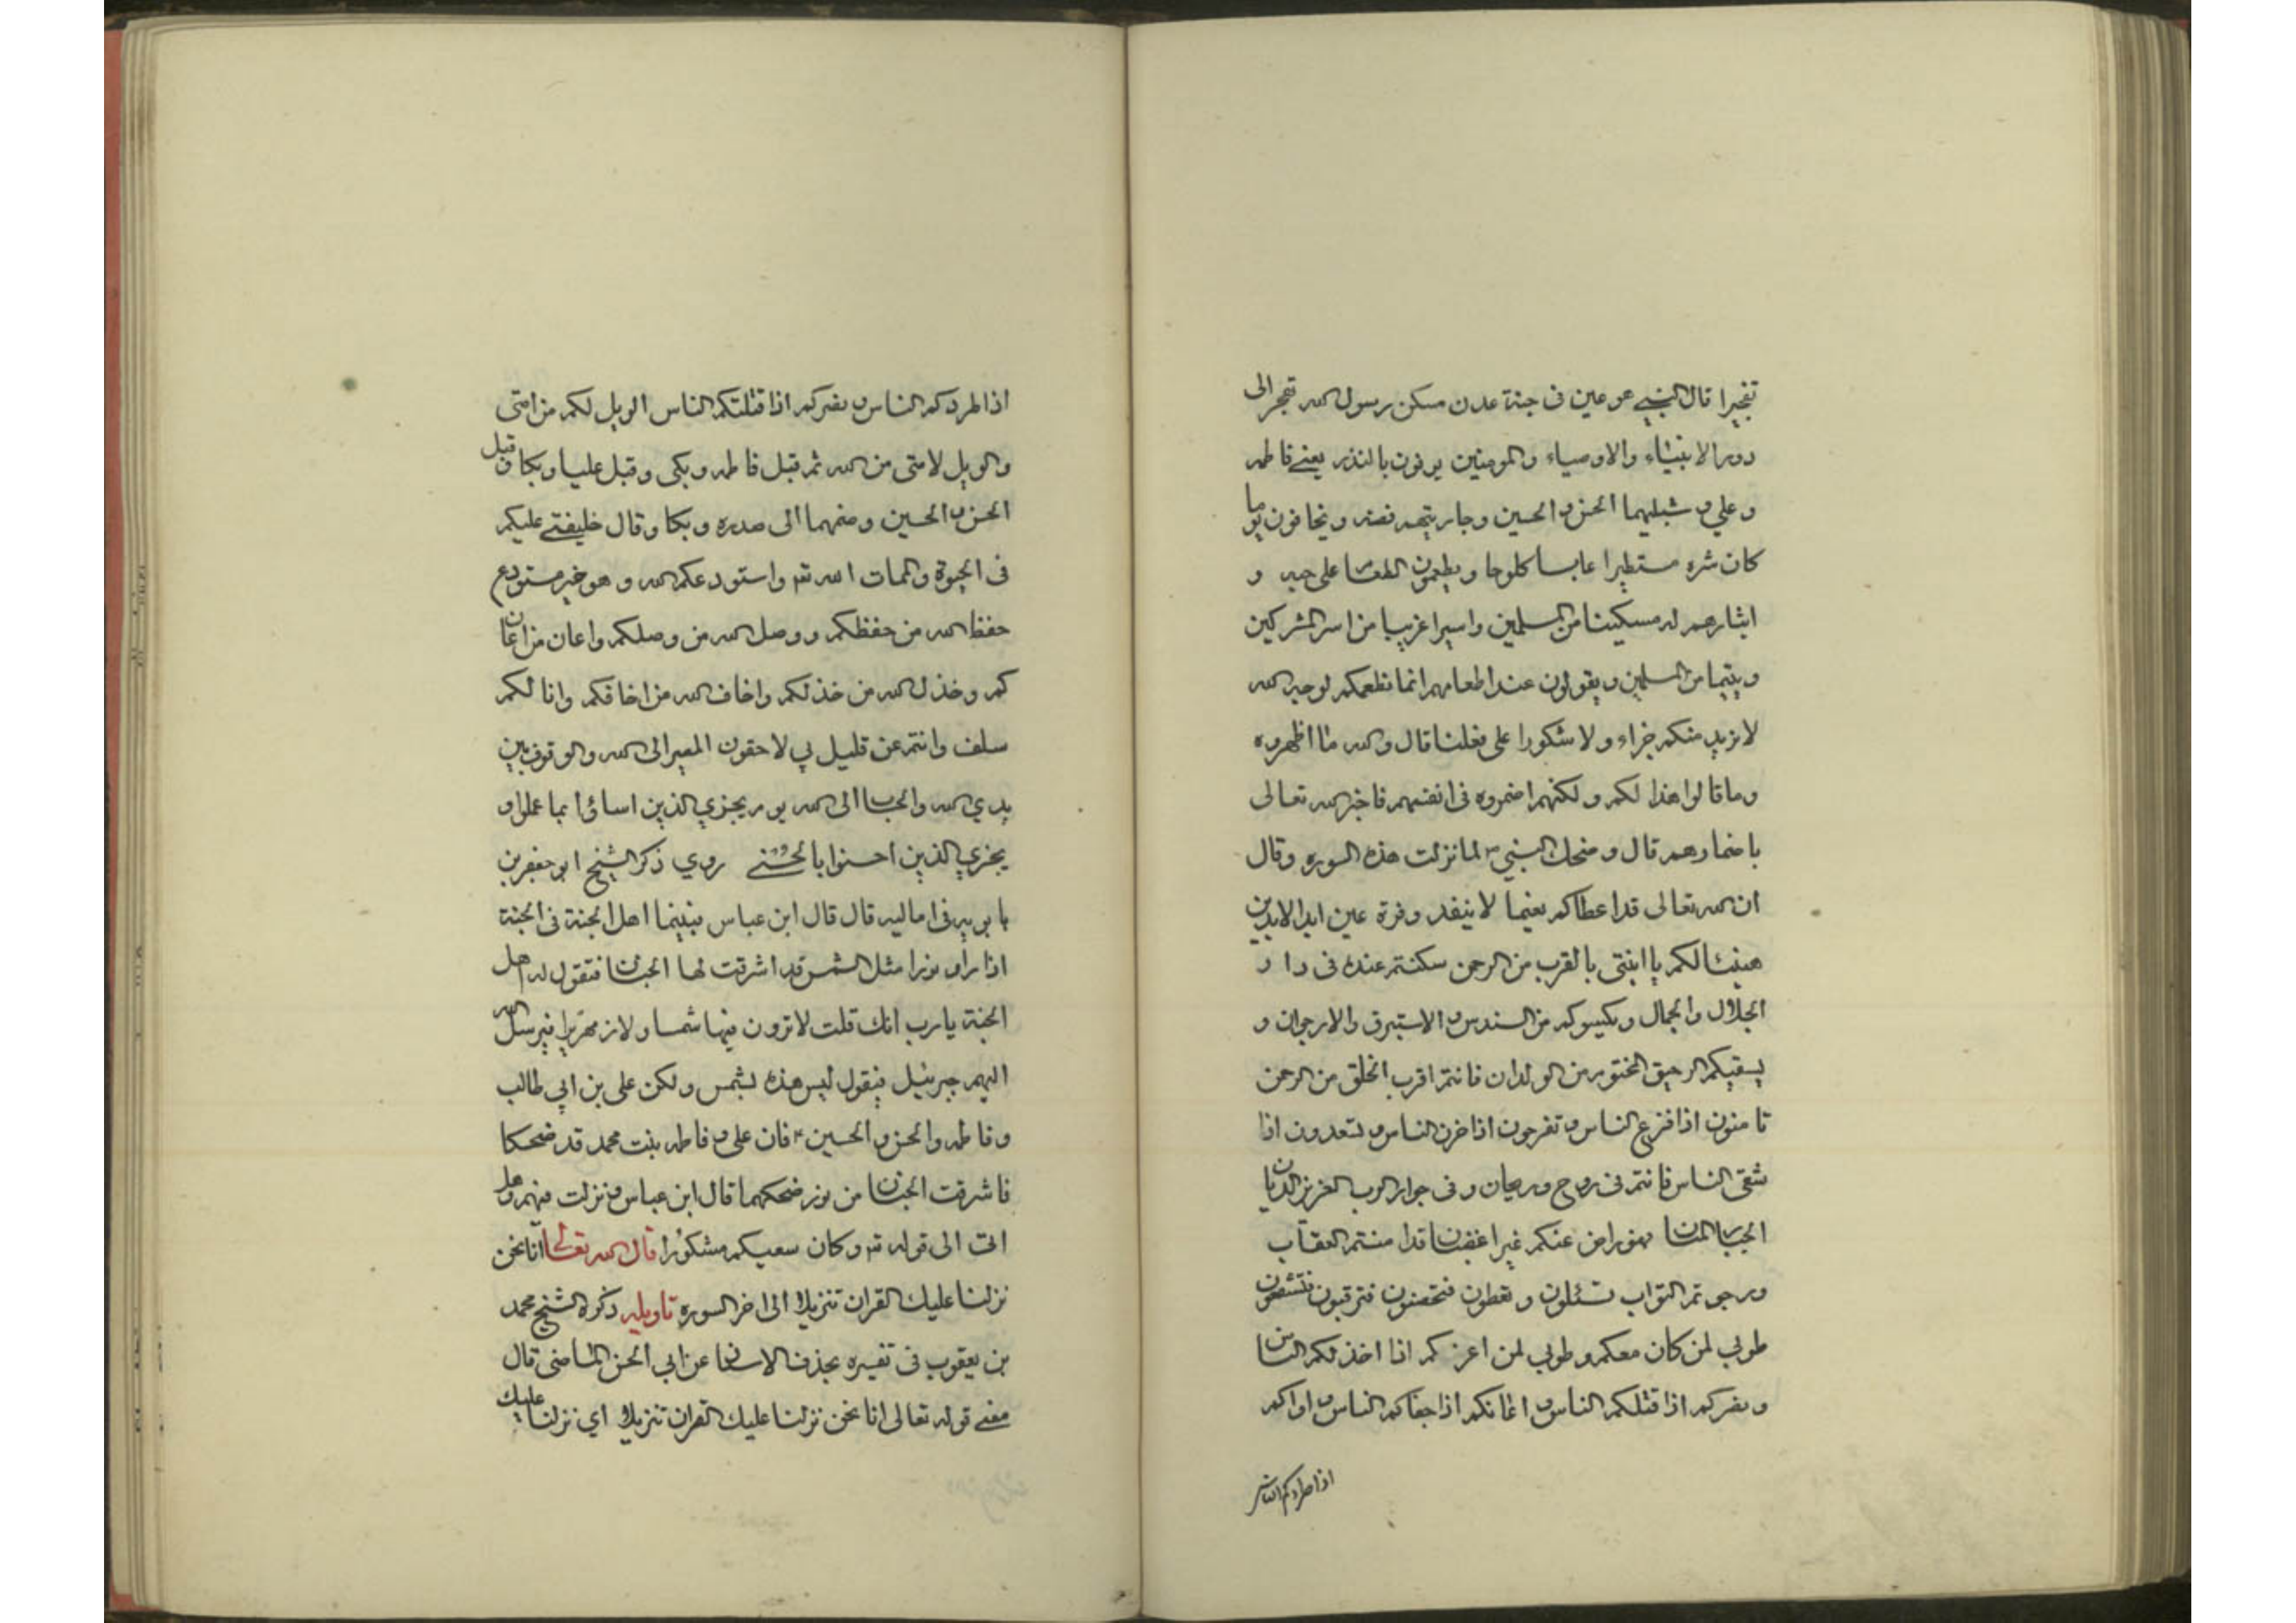 تفجيرا قال النبي هو عين فى جنة عدن مسكن رسول الله تفجر الى
دور الانبياء والاوصياء والمومنين يوفون بالنذر يعنے فاطمه
و علي و شبليهما الحسن و الحسين وجاريتهم فضه و يخافون يوما
كان شره مستطيرا عابسا كلوحا و يطعمون الطعام على حبه و
ايثارهم له مسكينا من المسلمين و اسيرا غريبا من اسر المشركين
و يتيما من المسلمين و يقولون عند اطعامهم انما نطعمكم لوجه الله
لا نريد منكم جزاء ولا شكورا على فعلنا قال والله ما اظهروه
وما قالوا هذا لكم و لكنهم اضمروه فى انفسهم فاخبر الله تعالى
باضمارهم قال و ضحك النبي لما نزلت هذه السوره وقال
ان الله تعالى قد اعطاكم نعيما لا ينفد وقرة عين ابد الابدين
هنيئا لكم يا ابنتى بالقرب من الرحمن سكنتم عنده فى دار
الجلال والجمال و يكسوكم من السندس و الاستبرق والارجوان و
يسقيكم الرحيق المختوم من الولدان فانتم اقرب الخلق من الرحمن
تامنون اذا فزع الناس و تفرحون اذا حزن الناس و تسعدون اذا
شقى الناس فانتم فى روح و ريحان و فى جوار الرب العزيز الديان
الجبار المنان فهو راض عنكم غير اغضبان قد امنتم العقاب
ورجوتم الثواب تسئلون و تعطون فتحضنون فترقبون فتشفعون
طوبي لمن كان معكم و طوبي لمن اعزكم اذا اخذلكم الناس
و نصركم اذا قتلكم الناس و اعانكم اذا جفاكم الناس و اواكم
اذا طردكم الناس
اذا طردكم الناس و نصركم اذا قتلتكم الناس الويل لكم من امتى
والويل لامتى من الله ثم قبل فاطمه و بكى و قبل عليا و بكا و قبل
الحسن و الحسين و ضمهما الى صدره و بكا و قال خليفتے عليكم
فى الحيوة والممات الله تم واستودعكم الله و هو خير مستودع
حفظ الله من حفظكم و وصل الله من وصلكم و اعان من اعان
كم و خذل الله من خذلكم و اخاف الله من اخافكم وانا لكم
سلف وانتم عن قليل بي لاحقون المصير الى الله والوقوف بين
يدي الله والحساب الى الله يوم يجزي الذين اساؤا بما عملوا و
يجزي الذين احسنوا بالحسنے روي ذكر الشيخ ابو جعفر بن
بابويه فى اماليه قال قال ابن عباس فبينما اهل الجنة فى الجنة
اذا راو نورا مثل الشمس قد اشرقت لها الجنان فتقول له اهل
الجنة يارب انك قلت لا ترون فيها شمسا ولا زمهريرا فيرسل الله
اليهم جبرئيل فيقول ليس هذه بشمس ولكن على بن ابي طالب
و فاطمه والحسن و الحسين فان على و فاطمه بنت محمد قد ضحكا
فاشرقت الجنان من نور ضحكهما قال ابن عباس و نزلت فيهم هل
اتى الى قوله تم و كان سعيكم مشكورا قال الله تعالى انا نحن
نزلنا عليك القران تنزيلا الى اخر السوره تاويله ذكره الشيخ محمد
بن يعقوب فى تفسيره بحذف الاسناد عن ابي الحسن الماضى قال
معنے قوله تعالى انا نحن نزلنا عليك القران تنزيلا اي نزلنا عليك